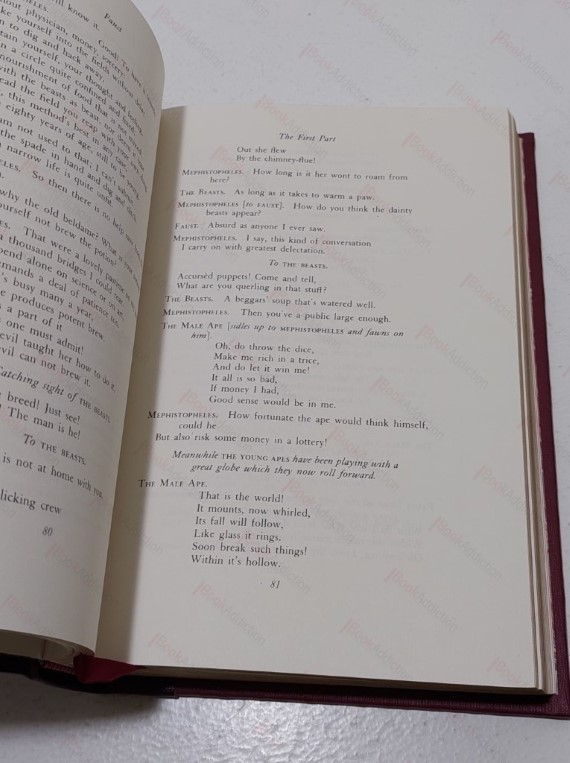 Faust
ll know it.
Good! To have
out physician, money, sorcery:
ke yourself into the fields without delay,
n to dig and hack away,
tain yourself, your thought and feeling
n a circle quite confined and
nourishment of food that is not
with the beasts as beast, nor deem
ead the field you reap with
this method's best in
eighty years of age, still
am not used to that; I can't
the spade in hand and dig and
narrow life is quite unfit
ELES. So then there is no help
why the old beldame? What
ourself not brew the potion?
ES. That were a lovely pastime
a thousand bridges I could
pend alone on science or on art
mands a deal of patience
's busy many a year,
e produces potent brew.
s a part of it
one must admit!
evil taught her how to do it,
evil can not brew it.
Catching sight of THE BEASTS.
breed! Just see!
! The man is he!
To THE BEASTS.
is not at home with you.
licking crew
80
The First Part
Out she flew
By the chimney-flue!
MEPHISTOPHELES. How long is it her wont to roam from
here?
THE BEASTS. As long as it takes to warm a paw.
MEPHISTOPHELES [to FAUST]. How do you think the dainty
beasts appear?
FAUST. Absurd as anyone I ever saw.
MEPHISTOPHELES. I say, this kind of conversation
I carry on with greatest delectation.
To THE BEASTS.
Accurséd puppets! Come and tell,
What are you querling in that stuff?
THE BEASTS. A beggars' soup that's watered well.
MEPHISTOPHELES. Then you've a public large enough.
THE MALE APE [sidles up to MEPHISTOPHELES and fawns on
him].
Oh, do throw the dice,
Make me rich in a trice,
And do let it win me!
It all is so bad,
If money I had,
Good sense would be in me.
MEPHISTOPHELES. How fortunate the ape would think himself,
could he
But also risk some money in a lottery!
Meanwhile THE YOUNG APES have been playing with a
great globe which they now roll forward.
THE MALE APE.
That is the world!
It mounts, now whirled,
Its fall will follow,
Like glass it rings.
Soon break such things!
Within it's hollow.
81